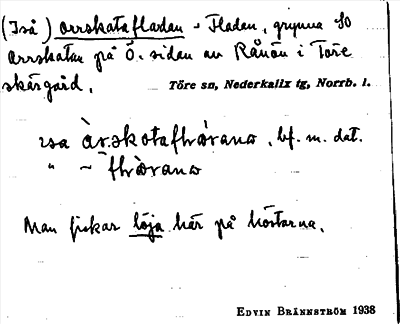 (Iså) orrskatafladan - Fladan, grynna SO
Orrskatan på Ö. sidan av Rånön i Töre
skärgård.
Töre sn, Nederkalix tg, Norrb. l.
bf. m. dat.
" ~
Man fiskar löja här på höstarna.
EDVIN BRÄNNSTRÖM 1938